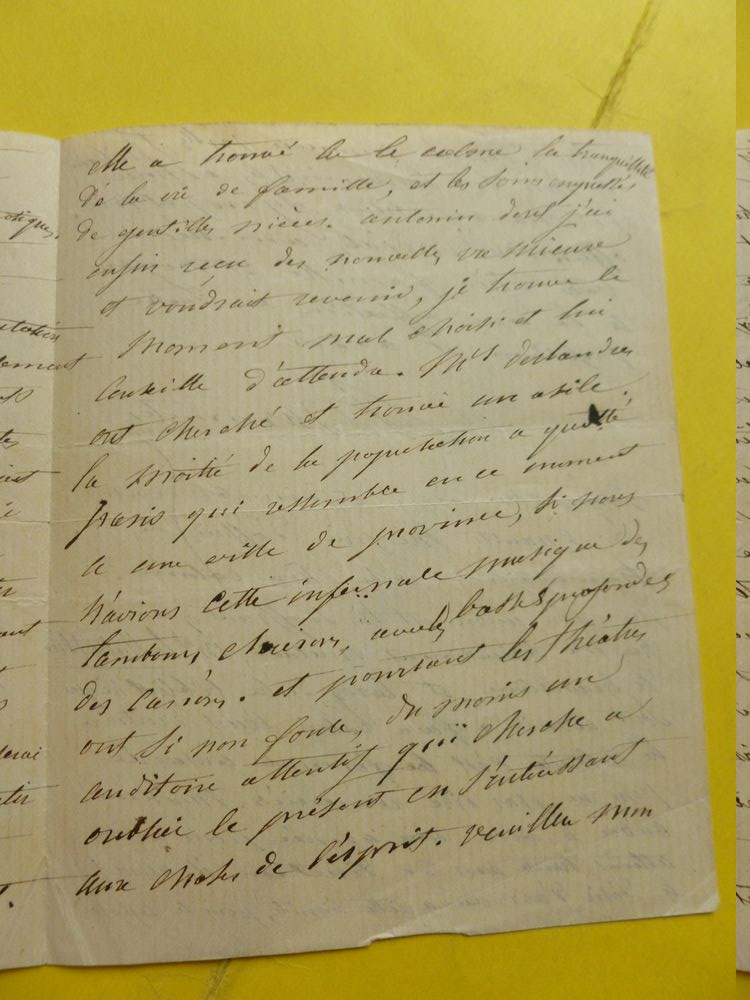 elle a trouvé là le calme la tranquillité
de la vie de famille, et les soins empressés
de gentilles nièces. antonin dont j'ai
enfin reçu des nouvelles va mieux
et voudrait revenir, je trouve le
moment mal choisi et lui
conseille d'attendre. Deslandres
ont cherché et trouvé un asile
la moitié de la population a quitté
paris qui ressemble en ce moment
a une ville de province, si nous
n'avions cette infernale musique des
tambours clairons, avec basses profondes
des canons. et pourtant les théâtres
ont si non foule, du moins un
auditoire attentif qui cherche a
oublier le présent en s'intéressant
aux choses de l'esprit. veuillez mon